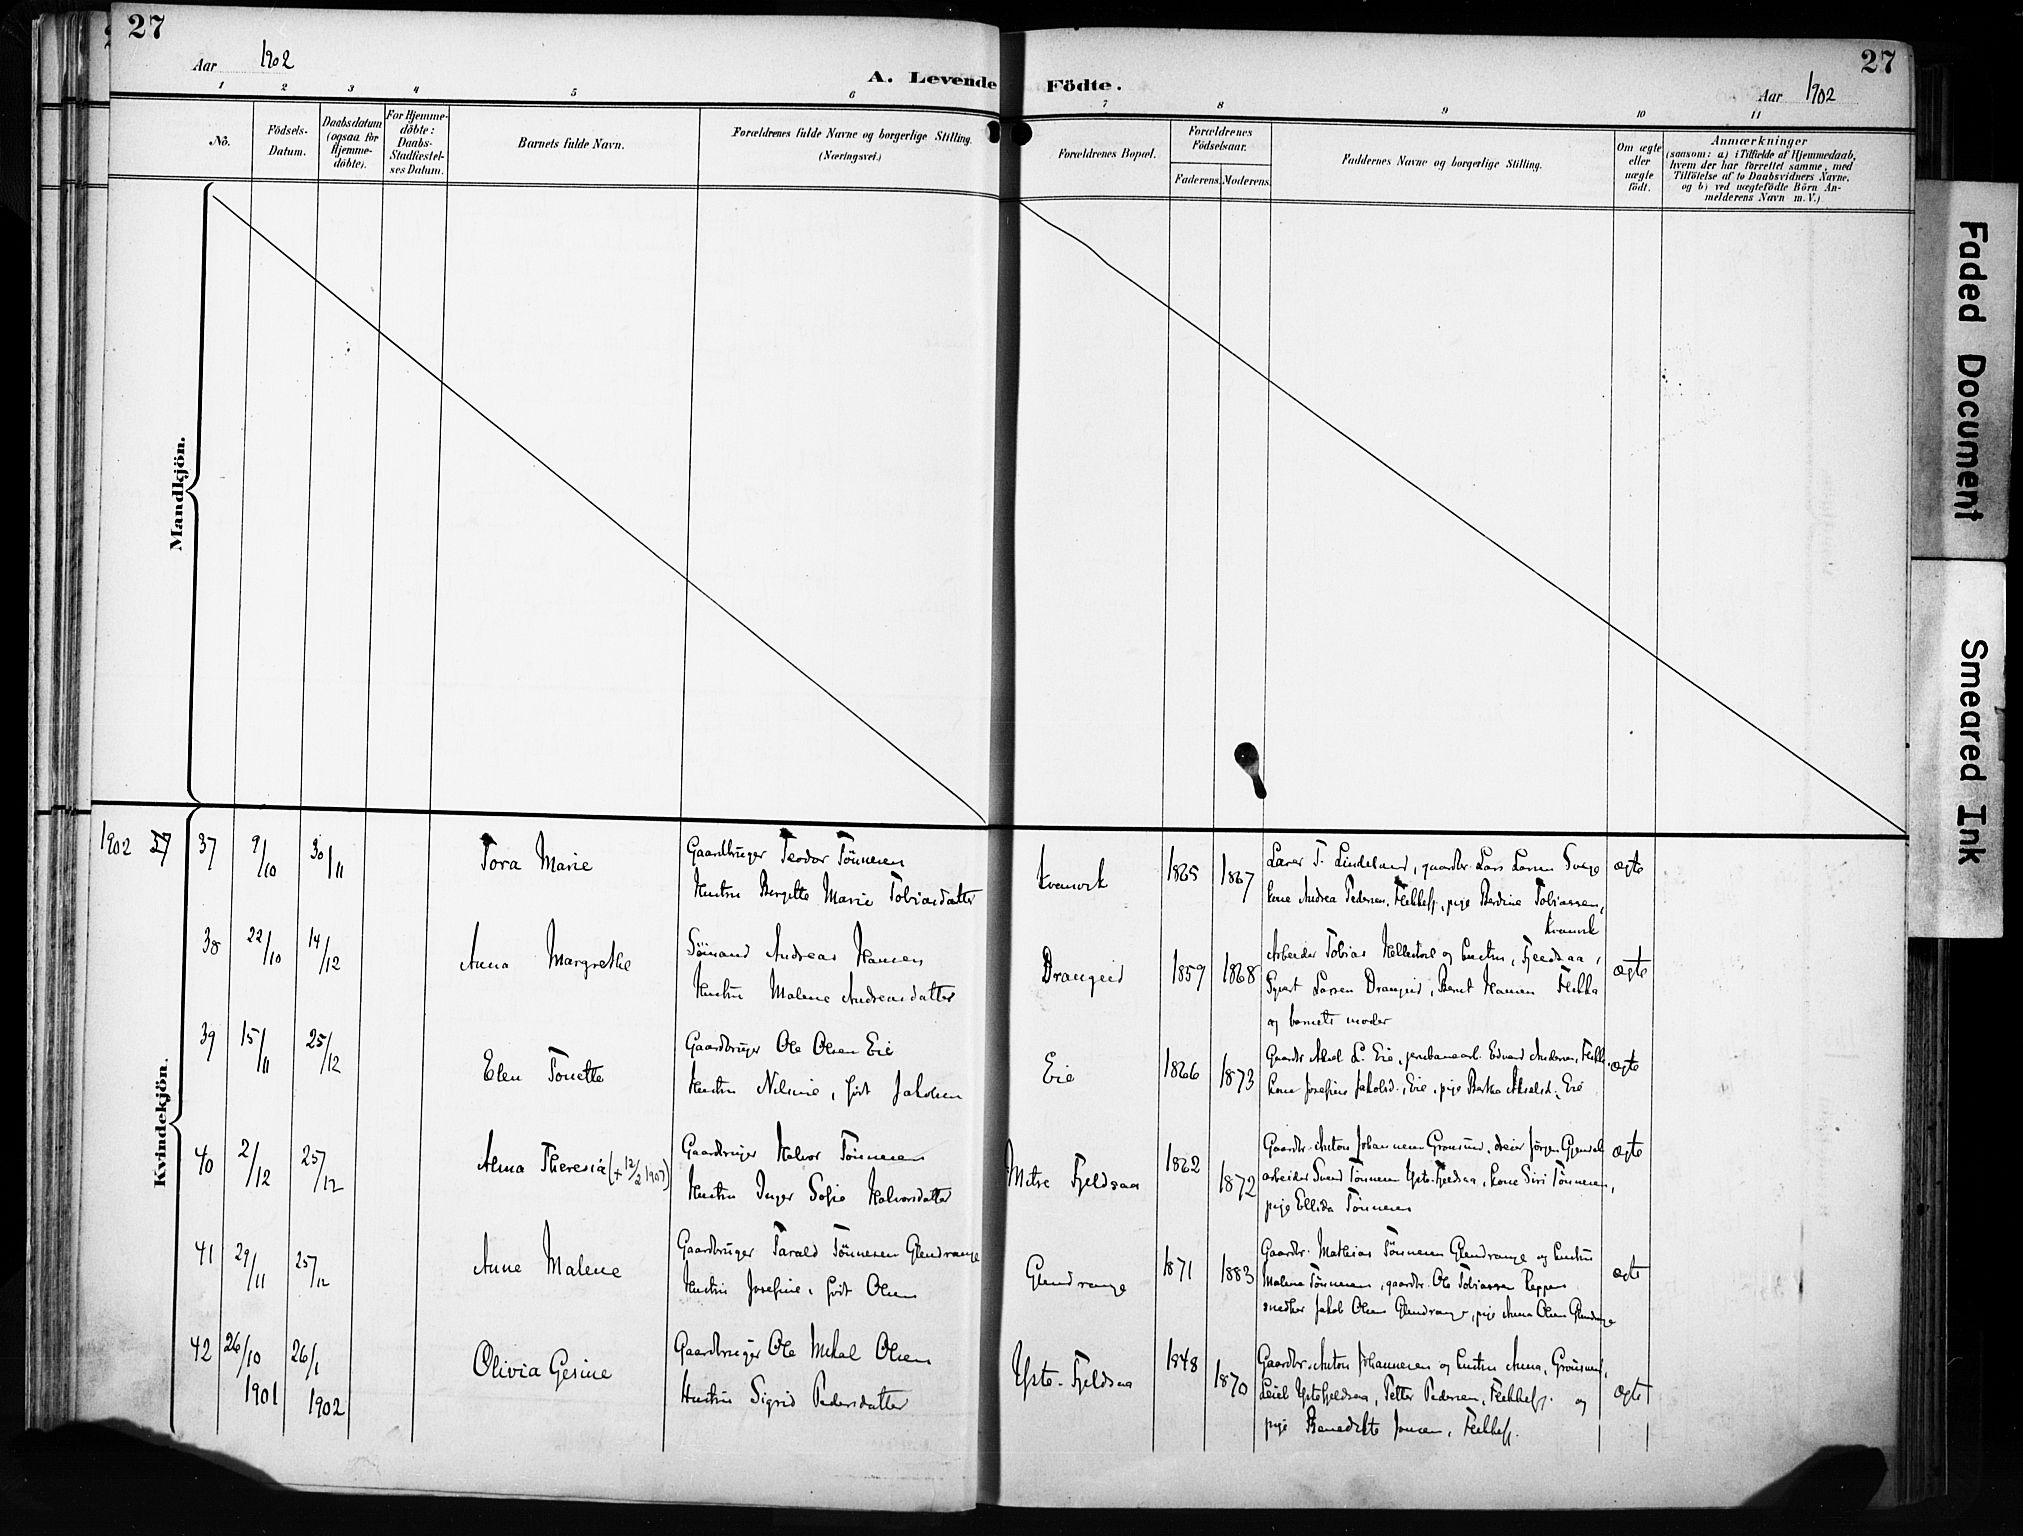 27
27
Aar 1902
A. Levende Födte.
Aar 1902
1 2 3 4 5 6 7 8 9 10 11
No.
Födsels-
Datum.
Daabsdatum
(ogsaa for
Hjemme-
döbte).
For Hjemme-
döbte:
Daabs-
Stadfæstel-
ses Datum.
Barnets fulde Navn.
Forældrenes fulde Navne og borgerlige Stilling.
(Næringsvei.)
Forældrenes Bopæl.
Forældrenes
Födselsaar.
Faderens. Moderens.
Faddernes Navne og borgerlige Stilling.
Om ægte
eller
uægte
født.
Anmærkninger
(saasom: a) i Tilfælde af Hjemmedaab,
hvem der har forrettet samme, med
Tilföielse af to Daabsvidners Navne,
og b) ved uægtefödte Börn An-
melderens Navn m.V.)
Mandkjön.
Kvindekjön.
1902 37 9/10 30/11 Tora Marie
Gaardbruger Teodor Tönnesen
Hustru Bergitte Marie Tobiasdatter
Kvanvik 1865 1867
Lærer T. Lindeland, gaardbr. Lars Larsen
kone Andrea Pedersen, Flekkefj., pige Berdine Tobiassen,
Kvanvik
ægte
38 22/10 14/12 Anna Margrethe
Sömand Andreas Hansen
Hustru Malene Andreasdatter
Drangeid 1859 1868
Arbeider Tobias og hustru, Fjeldsaa,
Larsen Drangeid, Bernt Hansen Flekke
og barnets moder
ægte
39 15/11 25/12 Elen Tonette
Gaardbruger Ole Olsen Eie
Hustru Nilsine, født Jakobsen
Eie 1866 1873
Gaardbr. Aksel L. Eie, jernbanearb. Edvard Andersen, Flekk.
kone Josefine Jakobsd., Eie, pige Berta Akselsd., Eie
ægte
40 2/12 25/12 Alma Theresia (+ 12/2 1907)
Gaardbruger Halvor Tönnesen
Hustru Inger Sofie Halvorsdatter
Mitre Fjeldsaa 1862 1872
Gaardbr. Anton Johannesen Grönsund, dreier Jörgen
arbeider Svend Tönnesen Yste-Fjeldsaa, kone Siri Tönnesen,
pige Ellida Tönnesen
ægte
41 29/11 25/12 Anne Malene
Gaardbruger Tarald Tönnesen Glendrange
Hustru Josefine, født Olsen
Glendrange 1871 1883
Gaardbr. Mathias Tönnesen Glendrange og hustru
Malene Tönnesen, gaardbr. Ole Tobiassen
snedker Jakob Olsen Glendrange, pige Anna Olsen Glendrange
ægte
42 26/10 1901 26/1 1902 Olivia Gesine
Gaardbruger Ole Mikal Olsen
Hustru Sigrid Pedersdatter
Yste-Fjeldsaa 1848 1870
Gaardbr. Anton Johannesen og hustru Anna, Grönsund,
Ystefjeldsaa, Petter Pedersen, Flekkefj. og
pige Benedikte Jonsen, Flekkefj.
ægte
Faded Document
Smeared Ink